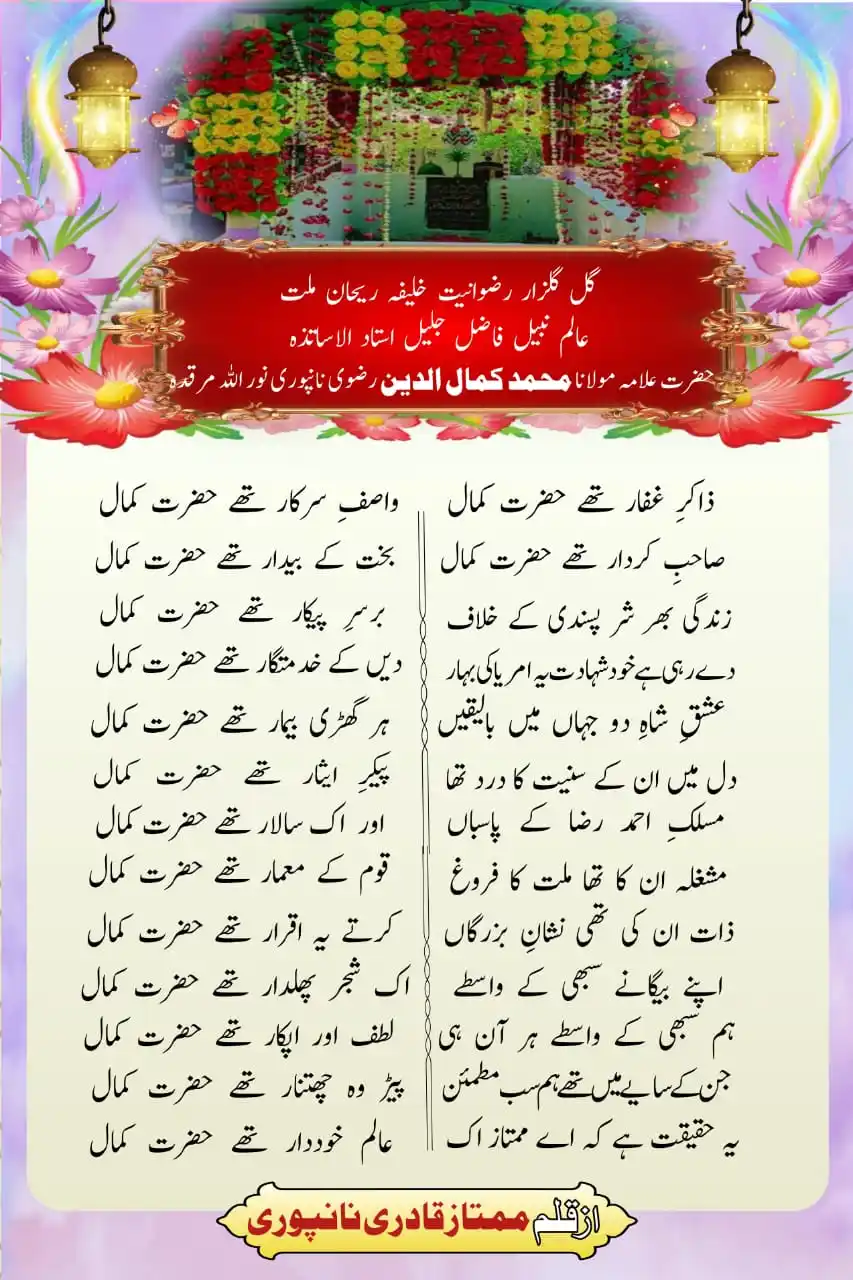 گل گلزار رضوانیت خلیفہ ریحان ملت
عالم نبیل فاضل جلیل استاد الاساتذہ
حضرت علامہ مولانا محمد کمال الدین رضوی نانپوری نور اللہ مرقدہ
ذاکرِ غفار تھے حضرت کمال واصفِ سرکار تھے حضرت کمال
صاحبِ کردار تھے حضرت کمال بخت کے بیدار تھے حضرت کمال
زندگی بھر شر پسندی کے خلاف برسرِ پیکار تھے حضرت کمال
دے رہی ہے خود شہادت یہ امریا کی بہار دیں کے خدمتگار تھے حضرت کمال
عشقِ شاہِ دو جہاں میں بالیقیں ہر گھڑی بیمار تھے حضرت کمال
دل میں ان کے سنیت کا درد تھا پیکرِ ایثار تھے حضرت کمال
مسلکِ احمد رضا کے پاسباں اور اک سالار تھے حضرت کمال
مشغلہ ان کا تھا ملت کا فروغ قوم کے معمار تھے حضرت کمال
ذات ان کی تھی نشانِ بزرگاں کرتے یہ اقرار تھے حضرت کمال
اپنے بیگانے سبھی کے واسطے اک شجر پھلدار تھے حضرت کمال
ہم سبھی کے واسطے ہر آن ہی لطف اور اپکار تھے حضرت کمال
جن کے سایے میں تھے ہم سب مطمئن پیڑ وہ چھتنار تھے حضرت کمال
یہ حقیقت ہے کہ اے ممتاز اک عالم خوددار تھے حضرت کمال
از قلم ممتاز قادری نانپوری